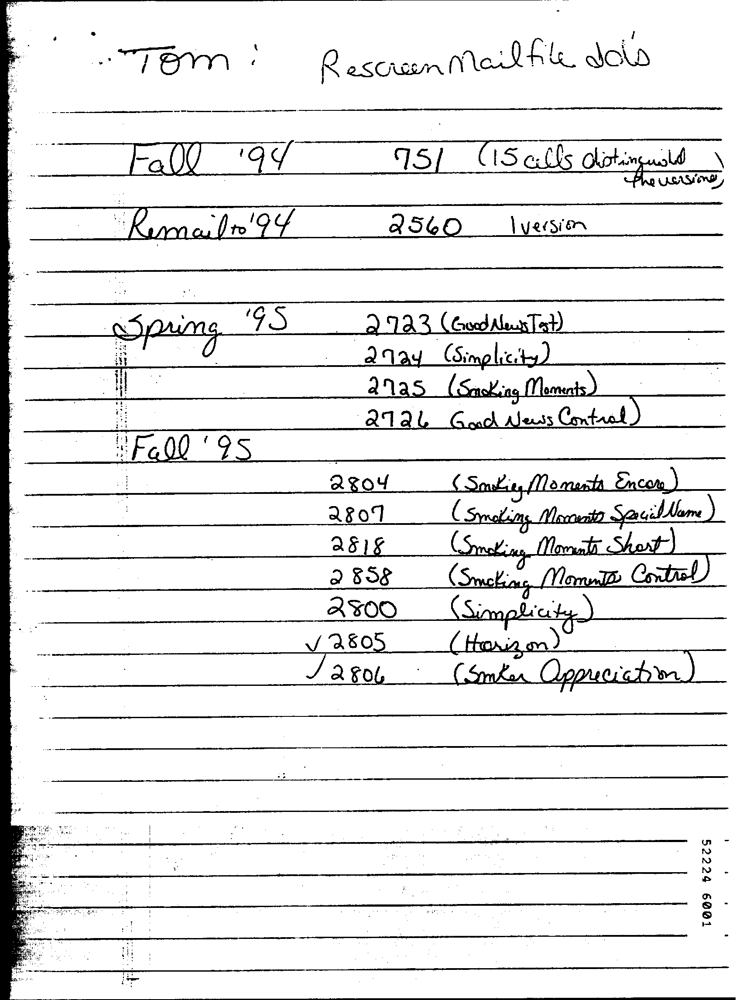 Tom: Rescreen Mailfile Job's
Fall '94 751 (15 cells distinguish
the versions)
Remail to '94 2560 1 version
Spring '95 2723 (Good News Test)
2724 (Simplicity)
2725 (Smoking Moments)
2726 Good News Control)
Fall '95
2804 (Smoking Moments Encore)
2807 (Smoking Moments Special Name)
2818 (Smoking Moments Short)
2858 (Smoking Moments Control)
2800 (Simplicity)
✓ 2805 (Horizon)
✓ 2806 (Smker Appreciation)
52224 6001